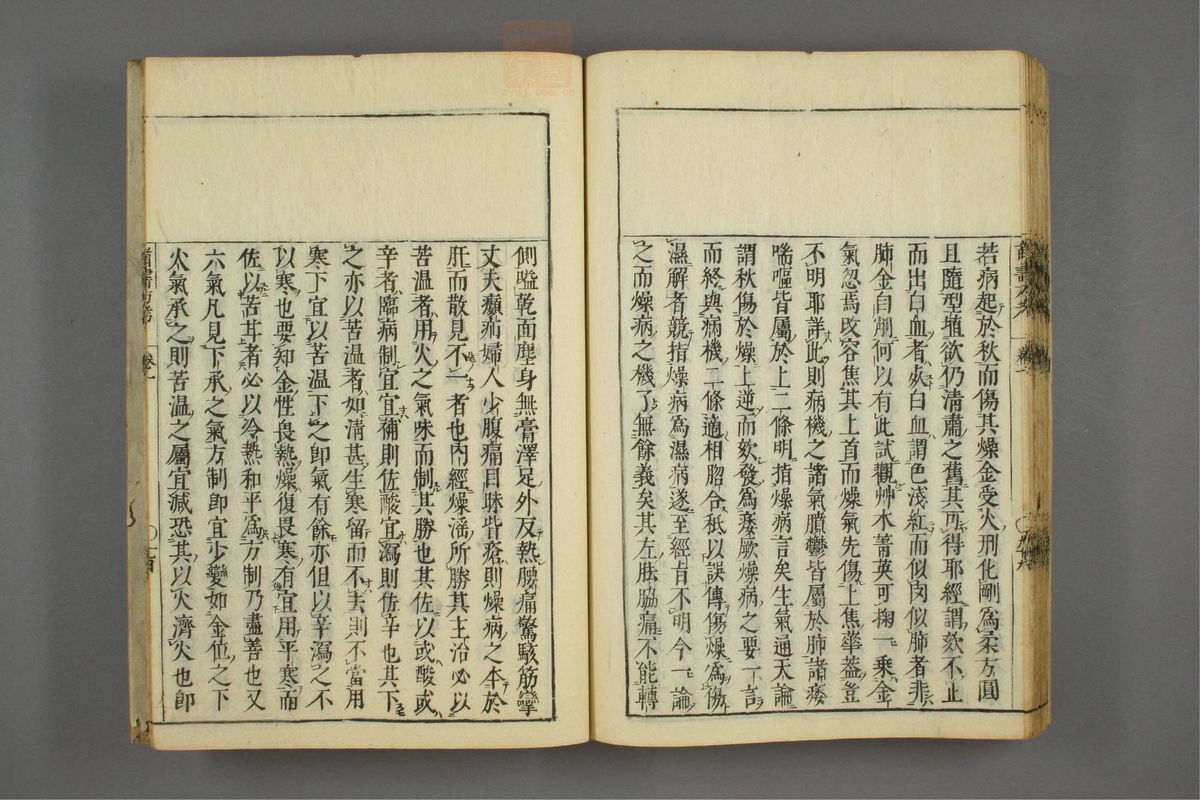 若病起於秋而傷其燥金受火刑化剛爲柔方圓
且隨型埴欲仍清肅之舊其可得耶經謂欬不止
而出白血者死白血謂色淺紅而似肉似肺者非
肺金自削何以有此試觀艸木菁英可掬一乘金
氣忽焉改容焦其上首而燥氣先傷上焦華葢豈
不明耶詳此則病機之諸氣膹鬱皆屬於肺諸痿
喘嘔皆屬於上二條明指燥病言矣生氣通天論
謂秋傷於燥上逆而欬發爲痿厥燥病之要一言
而終與病機二條適相脗合秪以誤傳傷燥爲傷
濕解者競指燥病爲濕病遂至經旨不明今一論
之而燥病之機了無餘義矣其左胠脇痛不能轉
側嗌乾面塵身無膏澤足外反熱腰痛驚駭筋攣
丈夫癩疝婦人少腹痛目眛眥瘡則燥病之本於
肝而散見不一者也內經燥淫所勝其主治必以
苦溫者用火之氣味而制其勝也其佐以或酸或
辛者臨病制宜宜補則佐酸宜瀉則佐辛也其下
之亦以苦溫者如清甚生寒留而不去則不當用
寒下宜以苦溫下之卽氣有餘亦但以辛瀉之不
以寒也要知金性畏熱燥復畏寒有宜用平寒而
佐以苦甘者必以冷熱和平爲方制乃盡善也又
六氣凡見下承之氣方制卽宜少變如金位之下
火氣承之則苦溫之屬宜減恐其以火濟火也卽
卷一
zysj.com.cn